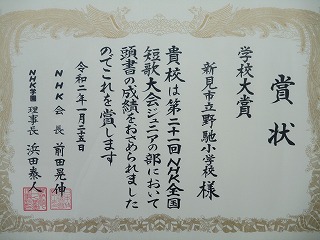 賞状
学校大賞
新見市立野馳小学校様
貴校は第二十一回NHK全国
短歌大会ジュニアの部において
頭書の成績をおさめられました
のでこれを賞します
令和二年一月二五日
NHK会長 前田晃伸
NHK学園 理事長 浜田泰人